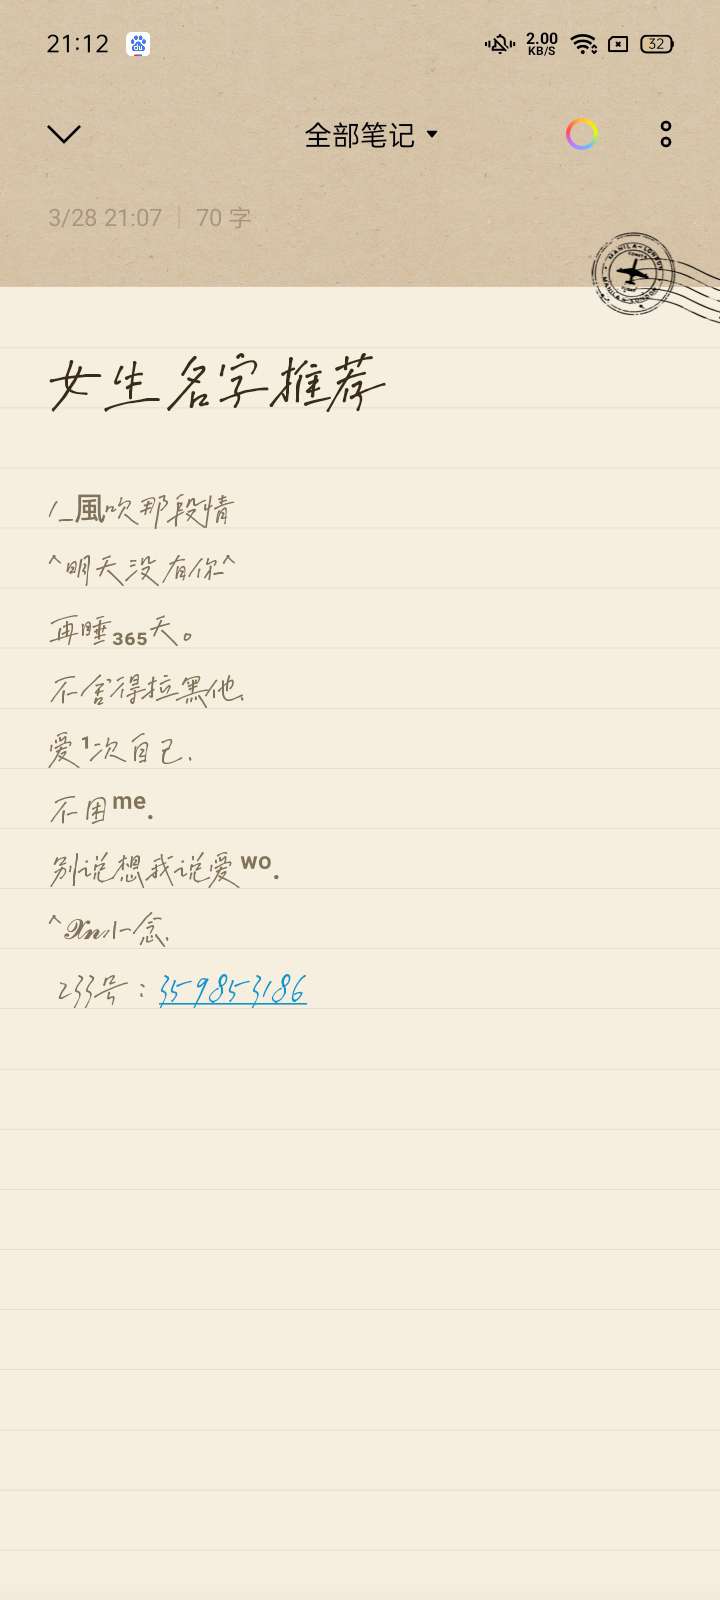 21:12 du 2.00 KB/S 32
全部笔记
3/28 21:07 | 70 字
MANILA-LONDON
MANILA-LONDON
女生名字推荐
/_風吹那段情
^明天没有你^
再睡₃₆₅天。
不舍得拉黑他.
爱¹次自己.
不困ᵐᵉ.
别说想我说爱ʷᵒ.
^𝓧𝓷小念.
233号：359853186